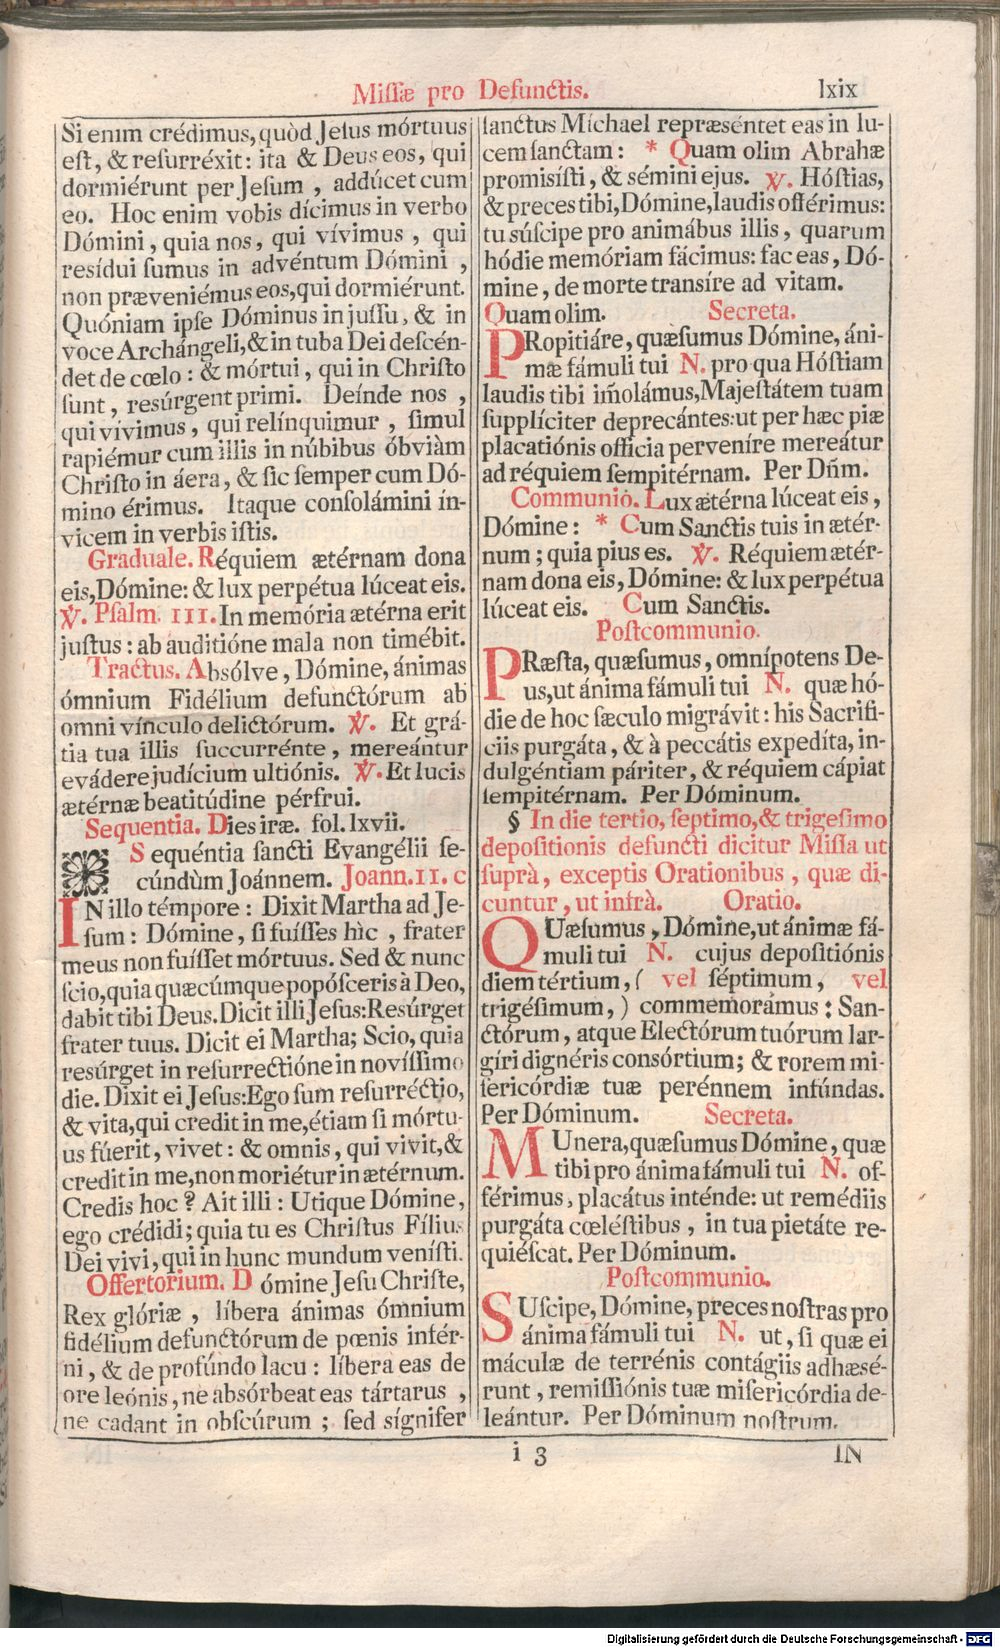 Missæ pro Defunctis. lxix
Si enim crédimus, quòd Jesus mórtuus
est, & resurréxit: ita & Deus eos, qui
dormiérunt per Jesum, addúcet cum
eo. Hoc enim vobis dícimus in verbo
Dómini, quia nos, qui vívimus, qui
resídui sumus in advéntum Dómini,
non præveniémus eos, qui dormiérunt.
Quóniam ipse Dóminus in jussu, & in
voce Archángeli, & in tuba Dei descén-
det de cœlo: & mórtui, qui in Christo
sunt, resúrgent primi. Deínde nos,
qui vívimus, qui relínquimur, simul
rapiémur cum illis in núbibus óbviàm
Christo in áera, & sic semper cum Dó-
mino érimus. Itaque consolámini ín-
vicem in verbis istis.
Graduale. Réquiem ætérnam dona
eis, Dómine: & lux perpétua lúceat eis.
℣. Psalm. III. In memória ætérna erit
justus: ab auditióne mala non timébit.
Tractus. Absólve, Dómine, ánimas
ómnium Fidélium defunctórum ab
omni vínculo delictórum. ℣. Et grá-
tia tua illis succurrénte, mereántur
evádere judícium ultiónis. ℣. Et lucis
ætérnæ beatitúdine pérfrui.
Sequentia. Dies iræ. fol. lxvii.
Sequéntia sancti Evangélii se-
cúndùm Joánnem. Joann. 11. c
IN illo témpore: Dixit Martha ad Je-
sum: Dómine, si fuísses hìc, frater
meus non fuísset mórtuus. Sed & nunc
scio, quia quæcúmque popósceris à Deo,
dabit tibi Deus. Dicit illi Jesus: Resúrget
frater tuus. Dicit ei Martha; Scio, quia
resúrget in resurrectióne in novíssimo
die. Dixit ei Jesus: Ego sum resurréctio,
& vita, qui credit in me, étiam si mórtu-
us fúerit, vivet: & omnis, qui vivit, &
credit in me, non moriétur in ætérnum.
Credis hoc? Ait illi: Utique Dómine,
ego crédidi; quia tu es Christus Fílius
Dei vivi, qui in hunc mundum venísti.
Offertorium. Dómine Jesu Christe,
Rex glóriæ, líbera ánimas ómnium
fidélium defunctórum de pœnis infér-
ni, & de profúndo lacu: líbera eas de
ore leónis, ne absórbeat eas tártarus,
ne cadant in obscúrum; sed sígnifer
sanctus Míchael repræséntet eas in lu-
cem sanctam: * Quam olim Abrahæ
promisísti, & sémini ejus. ℣. Hóstias,
& preces tibi, Dómine, laudis offérimus:
tu súscipe pro animábus illis, quarum
hódie memóriam fácimus: fac eas, Dó-
mine, de morte transíre ad vitam.
Quam olim. Secreta.
PRopitiáre, quæsumus Dómine, áni-
mæ fámuli tui N. pro qua Hóstiam
laudis tibi im̃olámus, Majestátem tuam
supplíciter deprecántes: ut per hæc piæ
placatiónis officia perveníre mereátur
ad réquiem sempitérnam. Per Dñm.
Communio. Lux ætérna lúceat eis,
Dómine: * Cum Sanctis tuis in ætér-
num; quia pius es. ℣. Réquiem ætér-
nam dona eis, Dómine: & lux perpétua
lúceat eis. Cum Sanctis.
Postcommunio.
PRæsta, quæsumus, omnípotens De-
us, ut ánima fámuli tui N. quæ hó-
die de hoc sæculo migrávit: his Sacrifi-
ciis purgáta, & à peccátis expedíta, in-
dulgéntiam páriter, & réquiem cápiat
sempitérnam. Per Dóminum.
§ In die tertio, septimo, & trigesimo
depositionis defuncti dicitur Missa ut
suprà, exceptis Orationibus, quæ di-
cuntur, ut infrà. Oratio.
QUæsumus, Dómine, ut ánimæ fá-
muli tui N. cujus depositiónis
diem tértium, ( vel séptimum, vel
trigésimum, ) commemorámus: San-
ctórum, atque Electórum tuórum lar-
gíri dignéris consórtium; & rorem mi-
sericórdiæ tuæ perénnem infúndas.
Per Dóminum. Secreta.
MUnera, quæsumus Dómine, quæ
tibi pro ánima fámuli tui N. of-
férimus, placátus inténde: ut remédiis
purgáta cœléstibus, in tua pietáte re-
quiéscat. Per Dóminum.
Postcommunio.
SUscipe, Dómine, preces nostras pro
ánima fámuli tui N. ut, si quæ ei
máculæ de terrénis contágiis adhæsé-
runt, remissiónis tuæ misericórdia de-
leántur. Per Dóminum nostrum.
i 3 IN
Digitalisierung gefördert durch die Deutsche Forschungsgemeinschaft - DFG